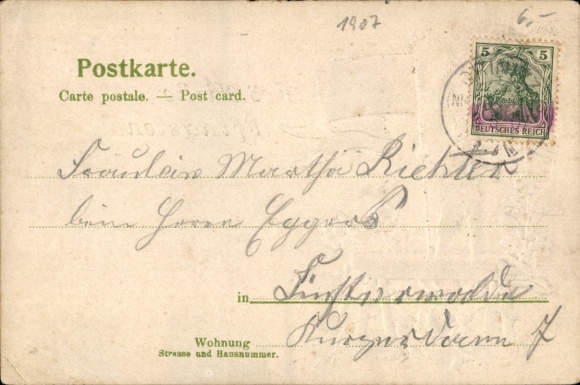 1907
6,-
Postkarte.
Carte postale. — Post card.
5 5
DEUTSCHES REICH
Fräulein Martha Richter
beim Herrn Eggers
in Finsterwalde
Wohnung
Strasse und Hausnummer.
7